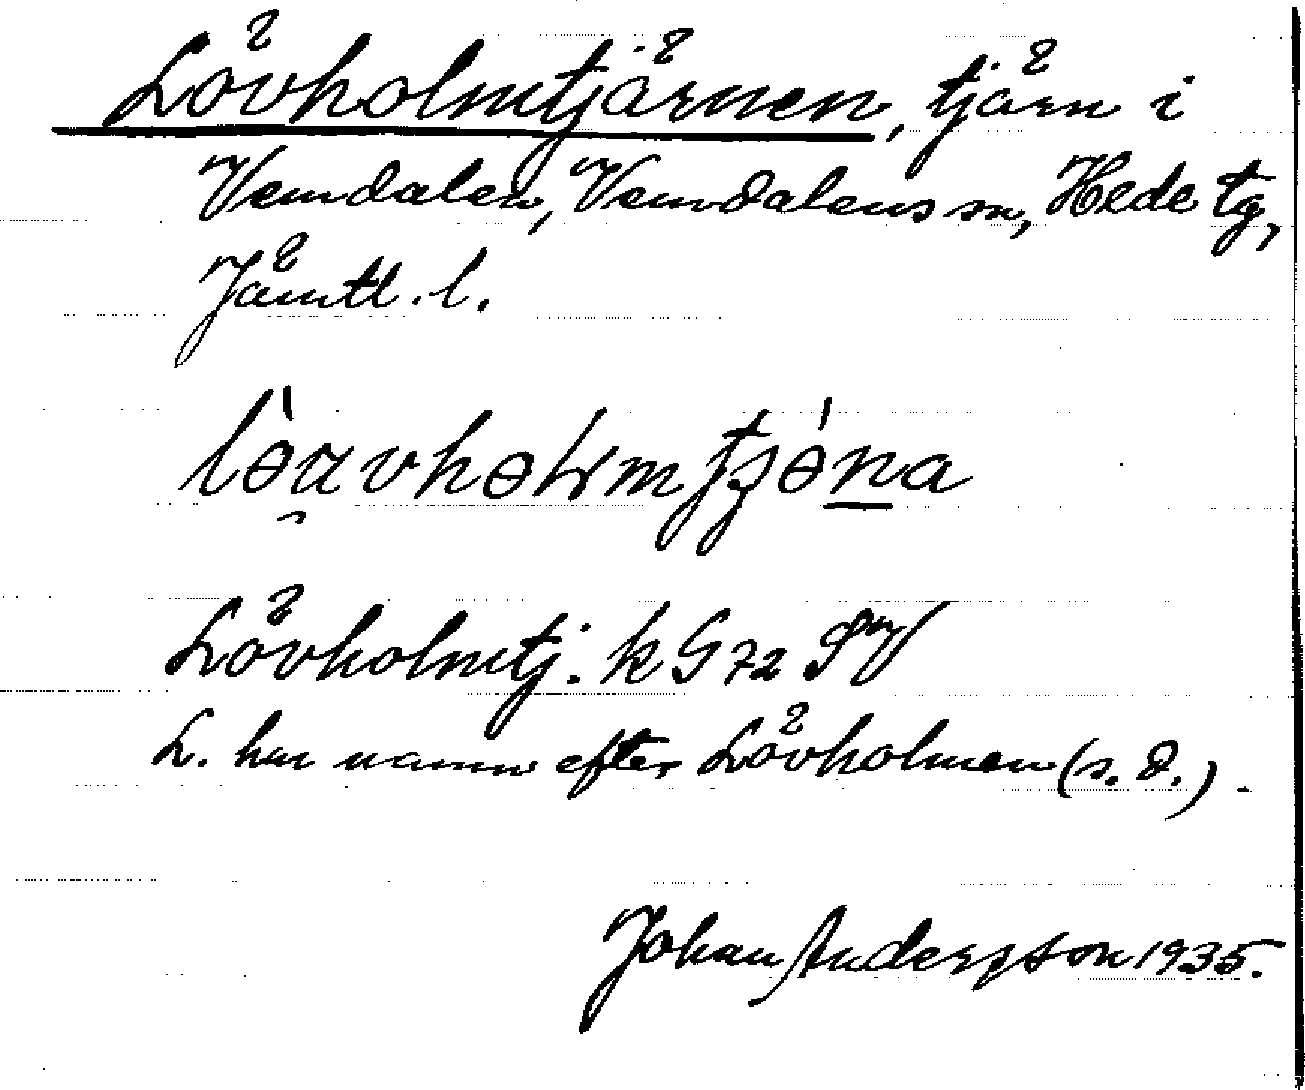 Lövholmtjärnen, tjärn i
Vemdalen, Vemdalens sn, Hede tg,
Jämtl. l.
Lövholmtj. k G 72 SV
L. har namn efter Lövholmen (s. d.).
Johan Andersson 1935.